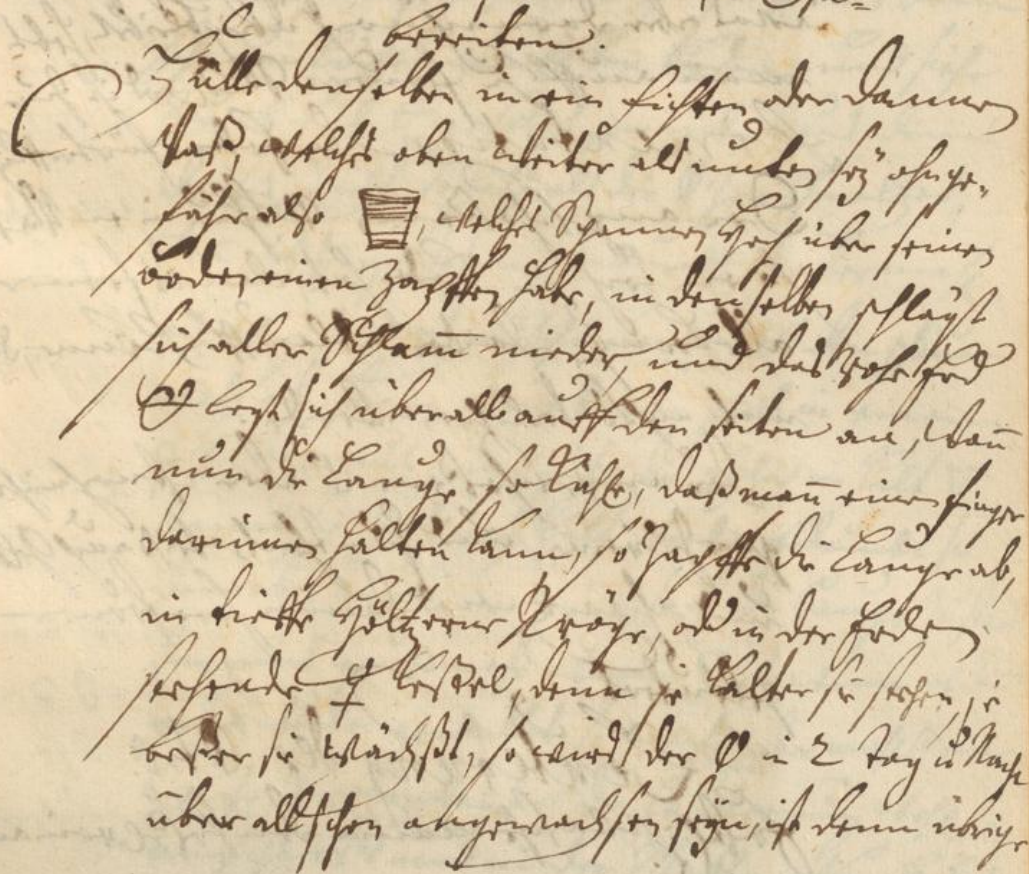 bereiten.
Fülle denselben in ein fichten oder dannen
Vaß, welches oben weiter als unten sey ohnge-
fähr also , welches Spannen hoch über seinen
boden einen Zapffen habe, in denselben schlägt
sich aller Schlam̅ nieder, und das rohe
legt sich überall auff den seiten an, wan̅
nun die Lauge so kühle, daß man̅ einen finger
darinnen halten kann, so Zapffe die Lauge ab,
in tieffe höltzerne Tröge, od in der Erden
stehende ♀ keßel, denn je kälter sie stehen, je
beßer sie wächßt, so wird der in 2 Tag u Nacht
über all schon angewachsen seyn, ist denn übrige